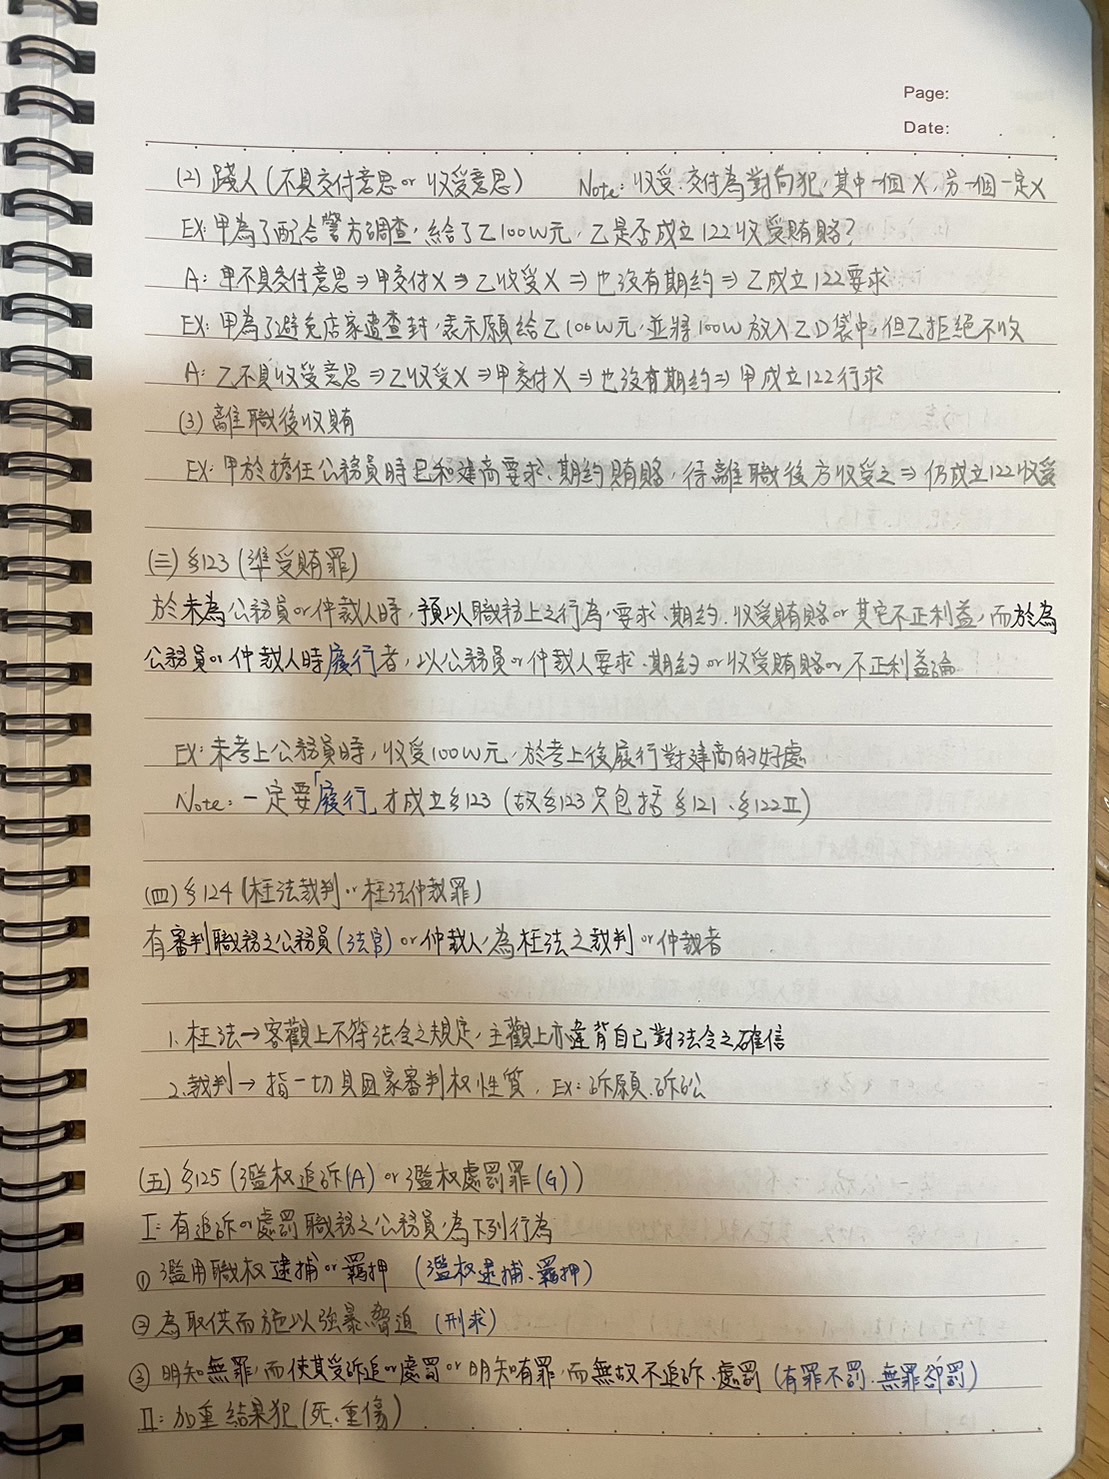 Page:
Date:
(2) 踐人(不具交付意思 or 收受意思) Note: 收受、交付為對向犯,其中一個X,另一個一定X
EX: 甲為了配合警方調查,給了乙100W元,乙是否成立122收受賄賂?
A: 甲不具交付意思⇒甲交付X⇒乙收受X⇒也沒有期約⇒乙成立122要求
EX: 甲為了避免店家遭查封,表示願給乙100W元,並將100W放入乙口袋中,但乙拒絕不收
A: 乙不具收受意思⇒乙收受X⇒甲交付X⇒也沒有期約⇒甲成立122行求
(3) 離職後收賄
EX: 甲於擔任公務員時已和建商要求、期約賄賂,待離職後方收受之⇒仍成立122收受
(三) §123 (準受賄罪)
於未為公務員or仲裁人時,預以職務上之行為,要求、期約、收受賄賂or其它不正利益,而於為
公務員or仲裁人時履行者,以公務員or仲裁人要求、期約or收受賄賂or不正利益論
EX: 未考上公務員時,收受100W元,於考上後履行對建商的好處
Note: 一定要「履行」才成立§123 (故§123只包括§121、§122II)
(四) §124 (枉法裁判or枉法仲裁罪)
有審判職務之公務員(法官) or仲裁人,為枉法之裁判or仲裁者
1. 枉法→客觀上不符法令之規定,主觀上亦違背自己對法令之確信
2. 裁判→指一切具國家審判权性質,EX: 訴願、訴訟
(五) §125 (濫权追訴(A) or濫权處罰罪(G))
I: 有追訴or處罰職務之公務員,為下列行為
① 濫用職权逮捕or羈押 (濫权逮捕、羈押)
② 為取供而施以強暴、脅迫 (刑求)
③ 明知無罪,而使其受訴追or處罰or明知有罪,而無故不追訴、處罰 (有罪不罰、無罪卻罰)
II: 加重結果犯(死、重傷)